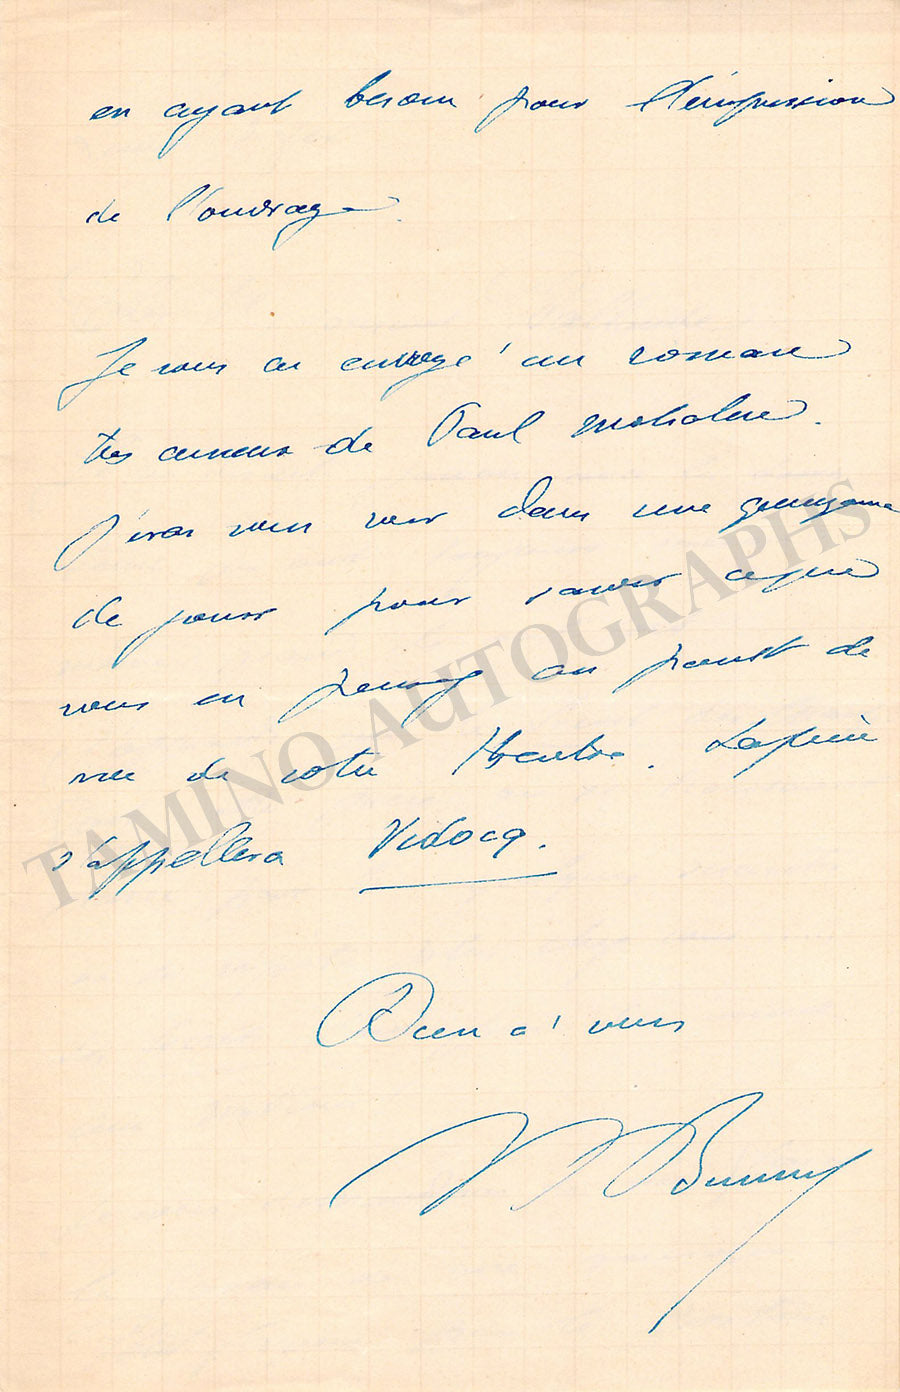 en ayant besoin pour l'impression
de l'ouvrage.
Je vous ai envoyé un roman
très curieux de Paul
J'irai vous voir dans une quinzaine
de jours pour savoir ce que
vous en pensez au point de
vue de votre théâtre. La pièce
s'appellera Vidocq.
Bien à vous
TAMINO AUTOGRAPHS